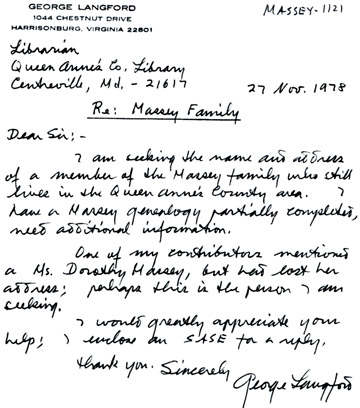 GEORGE LANGFORD
1044 CHESTNUT DRIVE
HARRISONBURG, VIRGINIA 22801
MASSEY-1121
Librarian
Queen Anne's Co. Library
Centreville, Md. - 21617
27 Nov. 1978
Re: Massey Family
Dear Sir;-
I am seeking the name and address
of a member of the Massey family who still
lives in the Queen Anne's County area. I
have a Massey genealogy partially completed,
need additional information.
One of my contributors mentioned
a Ms. Dorothy Massey, but had lost her
address; perhaps this is the person I am
seeking.
I would greatly appreciate your
help; I enclose an SASE for a reply.
Thank you. Sincerely
George Langford